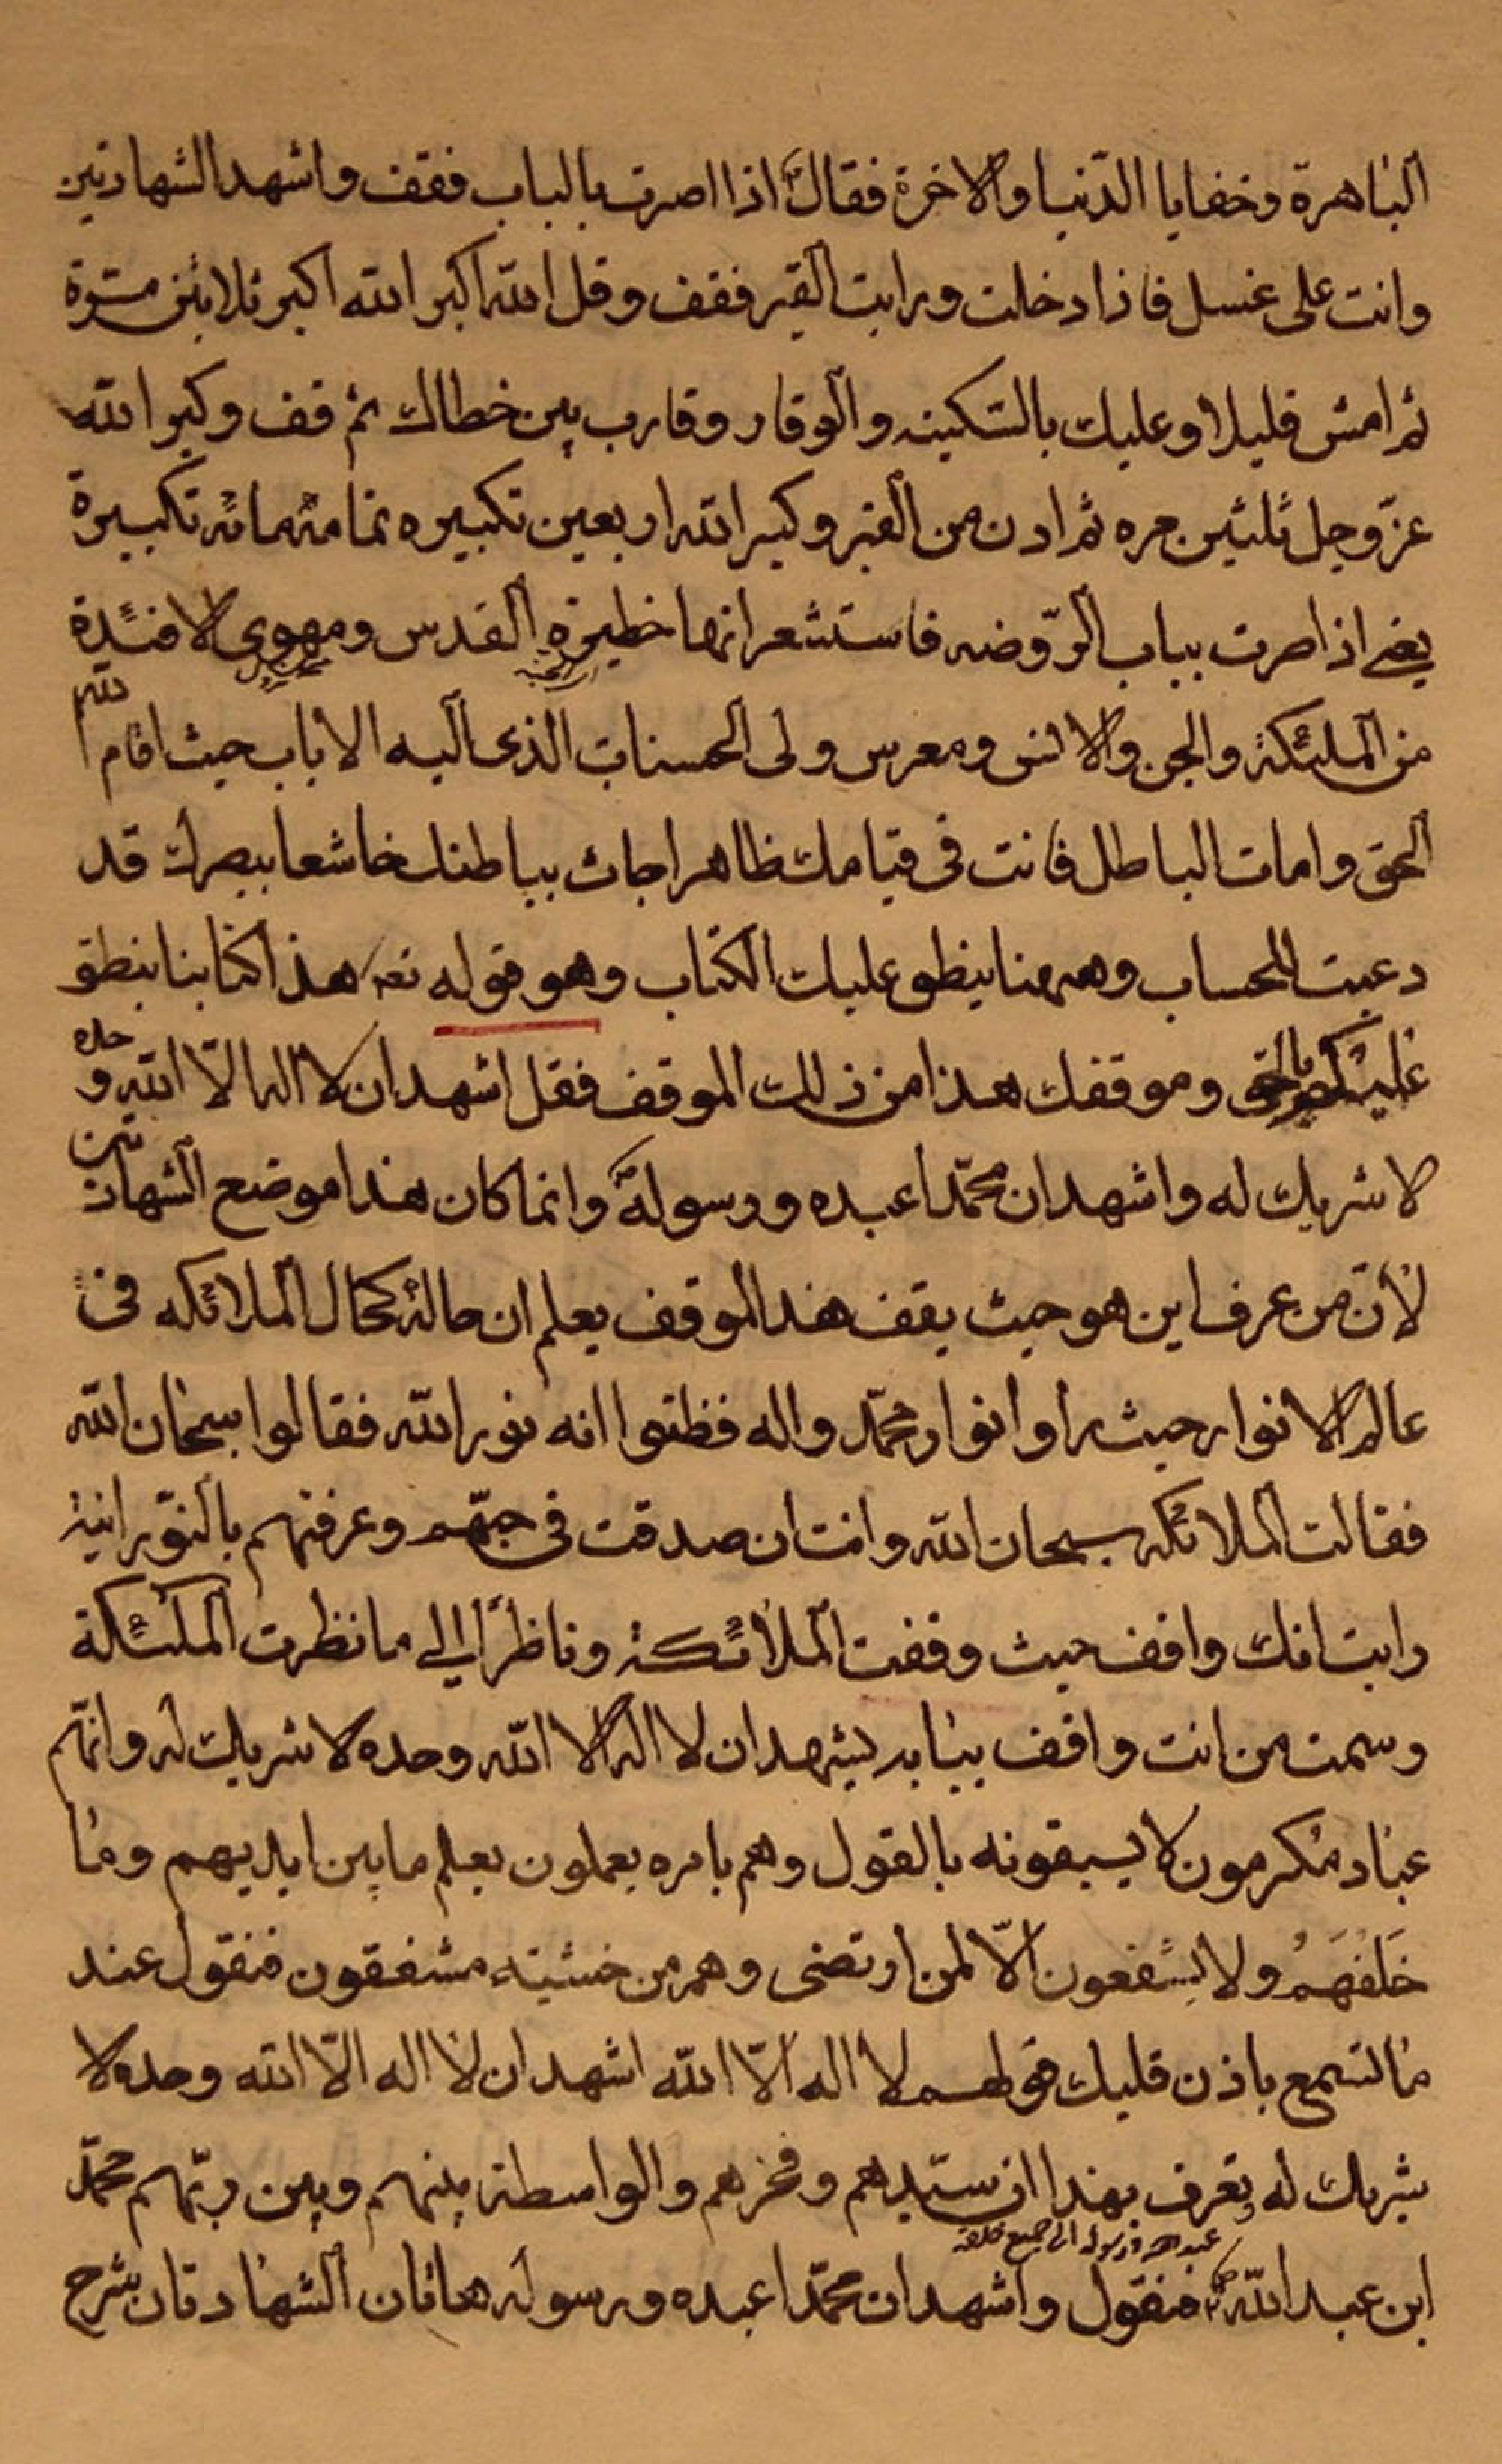 الباهرة وخفايا الدّنيا والاخرة فقالؑ اذا اصرت بالباب فقف واشهد الشهادتين
وانت على غسل فاذا دخلت ورايت القبر فقف وقل الله اكبر الله اكبر ثلاثين مرّة
ثم امش قليلا وعليك بالسّكينه والوقار وقارب بين خطاك ثم قف وكبر الله
عزّوجل ثلثين مره ثم ادن من القبر وكبر الله اربعين تكبيره تمام مائه تكبيرة
يعنى اذا صرت بباب الرّوضه فاستشعر انها خطيرة القدس ومهوى الافئدة
من الملئكة والجن والانس ومعرس ولى الحسنات الذى اليه الاباب حيث اقام الله
الحق وامات الباطل فانت فى قيامك ظاهرا جاث بباطنك خاشعا ببصرك قد
دعيت للحساب وههنا ينطق عليك الكتاب وهو قوله تعہ هذا كتابنا ينطق
عليكم بالحق وموقفك هذا من ذلك الموقف فقل اشهد ان لا اله الّا الله وحده
لا شريك له واشهد ان محمّدا عبده ورسولهؐ وانما كان هذا موضع الشهادتين
لأنّ من عرف اين هو حيث يقف هذا الموقف يعلم ان حاله كحال الملائكه فى
عالم الانوار حيث راوا انوار محمّد واله فظنّوا انه نور الله فقالوا سبحان الله
فقالت الملائكه سبحان الله وانت ان صدقت فى حبّهم وعرفتهم بالنّورانية
رايت انك واقف حيث وقفت الملائكة وناظرًا الى ما نظرت الملئكة
وسمت من انت واقف ببابه يشهد ان لا اله الا الله وحده لا شريك له وانّهم
عباد مكرمون لا يسبقونه بالقول وهم بامره يعملون يعلم ما بين ايديهم وما
خَلفَهُم ولا يشفعون الّا لمن ارتضى وهم من خشيته مشفقون فتقول عند
ما تسمع باذن قلبك قولهم لا اله الّا الله اشهد ان لا اله الّا الله وحده لا
شريك له وتعرف بهذا ان سيّدهم وفخرهم والواسطة بينهم وبين ربّهم محمّد
ابن عبد اللهؐ عبده ورسوله الى جميع خلقه فتقول واشهد ان محمّدا عبده ورسوله هاتان الشهادتان شرح